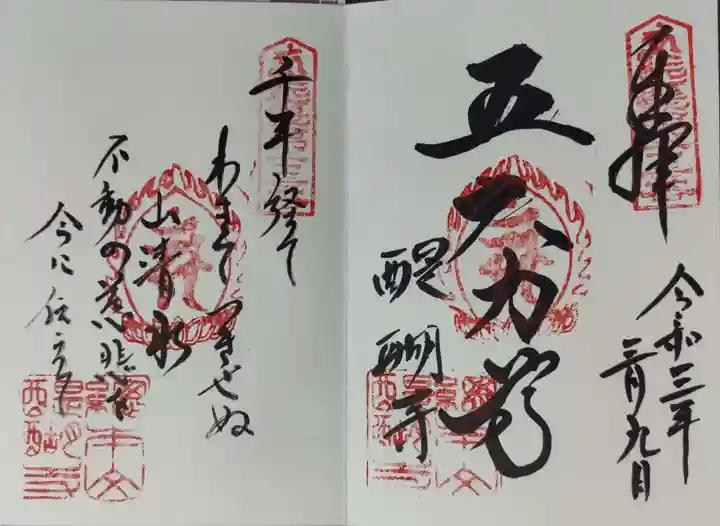 奉拝
五大力尊
醍醐寺
令和三年
三月九日
千年経て
わきてつきせぬ
山清水
不動の慈悲を
今に